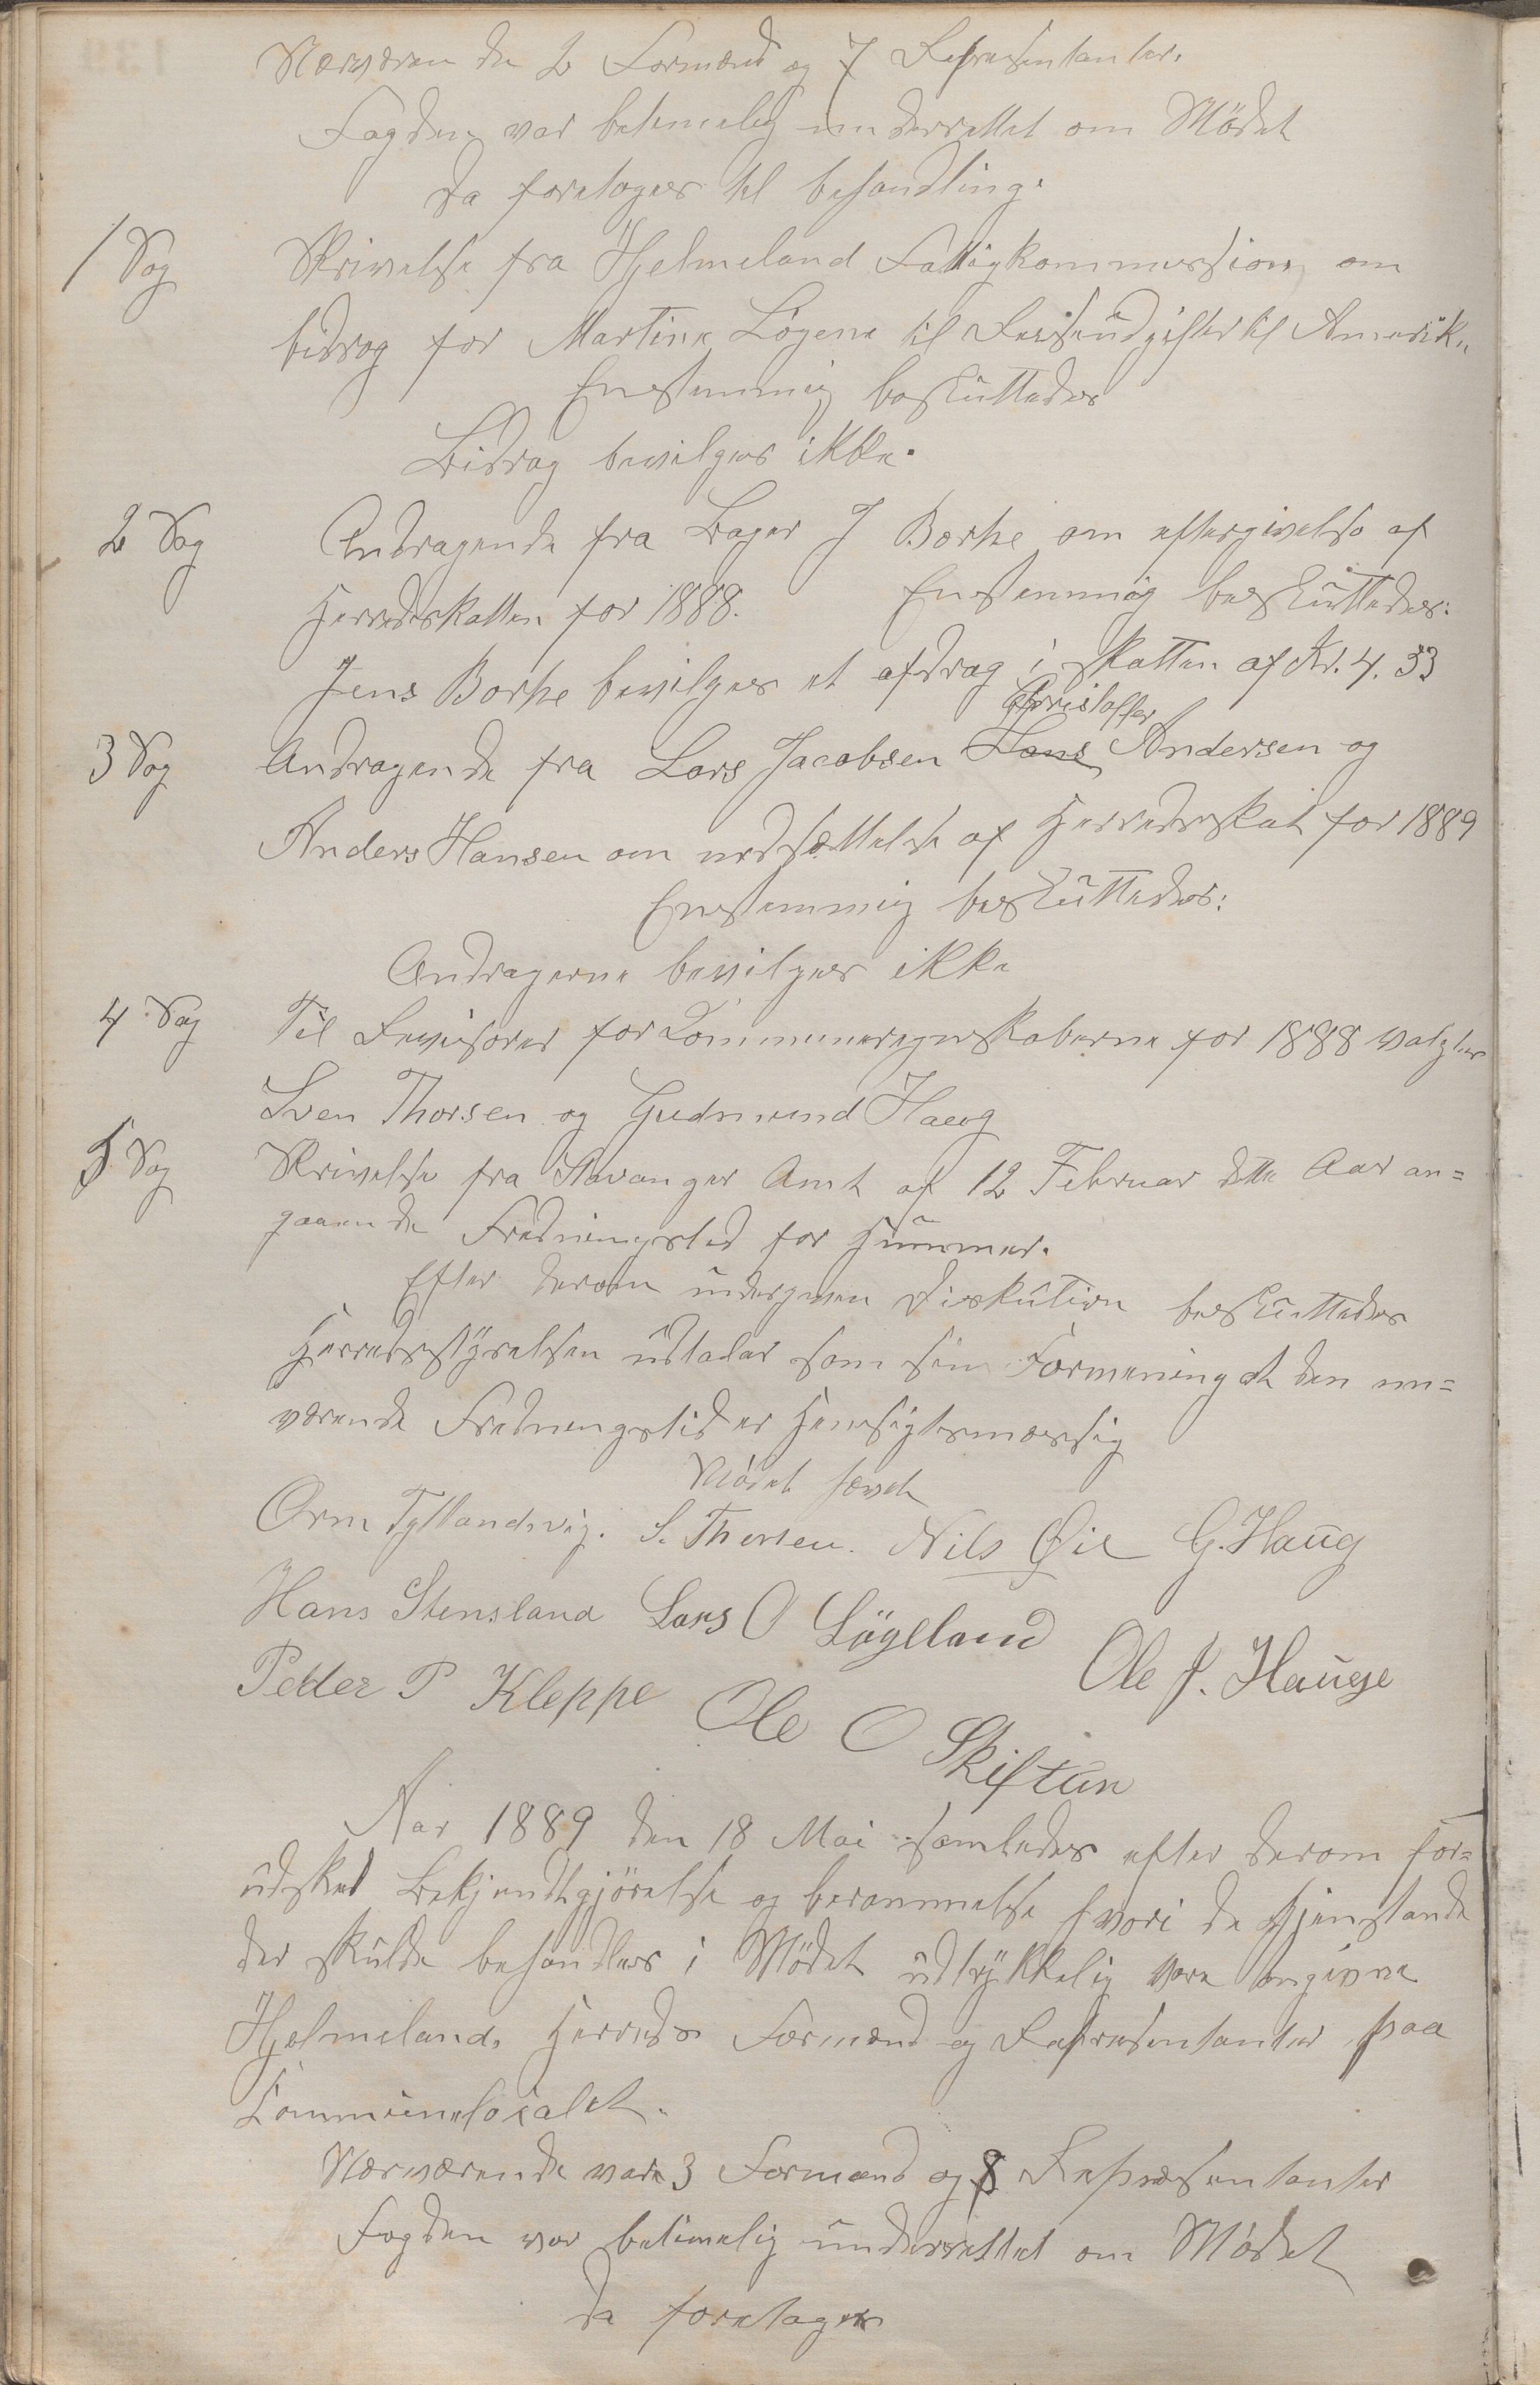 Nærværende 2 Formænd og 7 Repræsentanter.
Fogden var betimelig underrettet om Mödet
Da foretoges til behandling.
1 Sag Skrivelse fra Hjelmeland Fattigkommission om
bidrag for Martine Lögene til Reiseudgifter til Amerika
Enstemmig besluttedes
Bidrag bevilges ikke.
2 Sag Andragende fra Bager J Borke om eftergivelse af
Herredskatten for 1888. Enstemmig besluttedes:
Jens Borke bevilges et afdrag i skatten af Kr. 4.33
Christoffer
3 Sag Andragende fra Lars Jacobsen Hans Andersen og
Anders Hansen om nedsættelse af Herredsskat for 1889
Enstemmig besluttedes:
Andragerne bevilges ikke
4 Sag Til Revisorer for Kommuneregnskaberne for 1888 valgtes
Sven Thorsen og Gudmund Haug
5 Sag Skrivelse fra Stavanger Amt af 12 Februar dette Aar an=
gaaende Fredningstid for Hummer.
Efter derom undergiven Diskution besluttedes
Herredsstyrelsen udtaler som sin Formening at den nu=
værende Fredningstid er Hensigtsmæssig
Mödet hævet
Orm Tyttandsvig. S. Thorsen. Nils Øie G. Haug
Hans Stensland Lars O Lögeland
Ole J. Hauge
Peder P Kleppe Ole O Skiftun
Aar 1889 den 18 Mai samledes efter derom for=
udsked Bekjendtgjörelse og berammelse hvori de Gjenstande
der skulde behandles i Mödet udtrykkelig vare angivne
Hjelmelands Herreds Formænd og Repræsentanter paa
Kommunelokalet.
Nærværende vare 3 Formænd og 8 Repræsentanter
Fogden var betimelig underrettet om Mödet
Da foretages